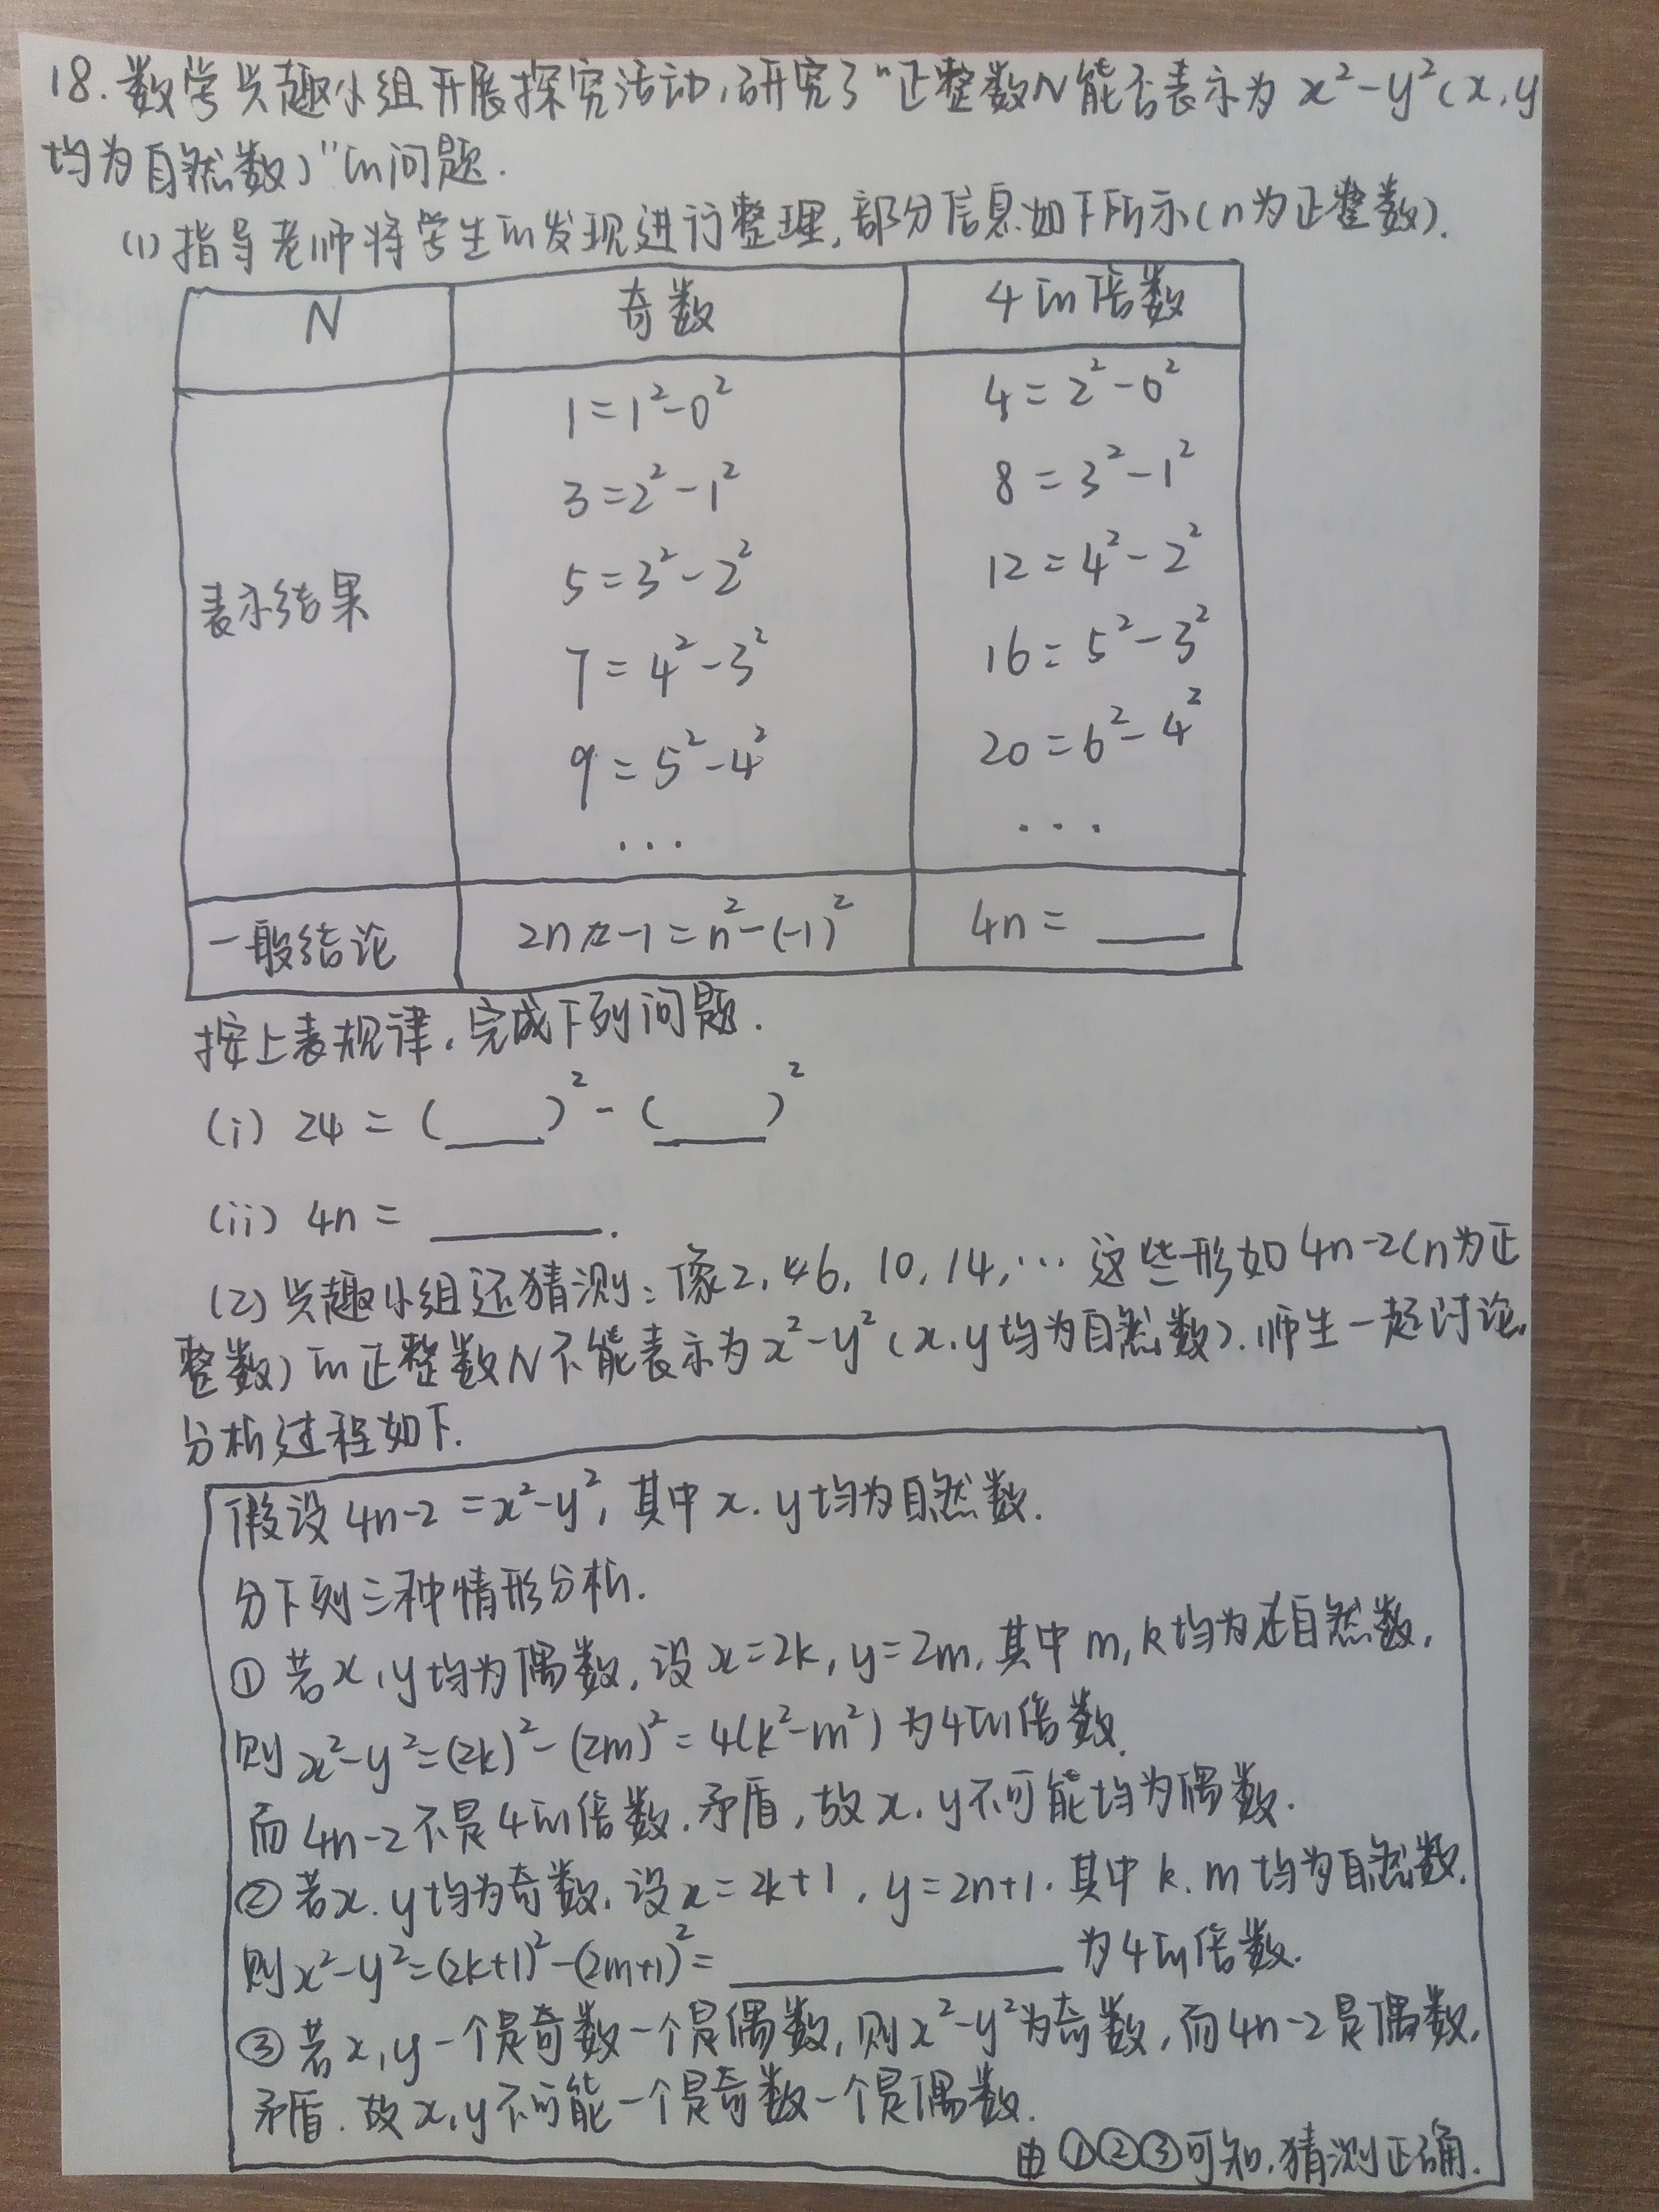 18.数学兴趣小组开展探究活动,研究了“正整数N能否表示为 x²-y²(x,y
均为自然数)”的问题.
(1)指导老师将学生的发现进行整理,部分信息如下所示(n为正整数).
N 奇数 4的倍数
表示结果
1=1²-0² 4=2²-0²
3=2²-1² 8=3²-1²
5=3²-2² 12=4²-2²
7=4²-3² 16=5²-3²
9=5²-4² 20=6²-4²
... ...
一般结论 2n-1=n²-(-1)² 4n=____
按上表规律,完成下列问题.
(i) 24=(____)²-(____)²
(ii) 4n=______.
(2)兴趣小组还猜测:像2,6,10,14,… 这些形如4n-2(n为正
整数)的正整数N不能表示为x²-y²(x,y均为自然数).师生一起讨论,
分析过程如下.
假设4n-2=x²-y²,其中x.y均为自然数.
分下列三种情形分析.
①若x,y均为偶数,设x=2k,y=2m,其中m,k均为自然数,
则x²-y²=(2k)²-(2m)²=4(k²-m²)为4的倍数.
而4n-2不是4的倍数.矛盾,故x.y不可能均为偶数.
②若x.y均为奇数,设x=2k+1,y=2n+1.其中k.m均为自然数,
则x²-y²=(2k+1)²-(2m+1)²=____________为4的倍数.
③若x,y一个是奇数一个是偶数,则x²-y²为奇数,而4n-2是偶数,
矛盾.故x,y不可能一个是奇数一个是偶数.
由①②③可知,猜测正确.